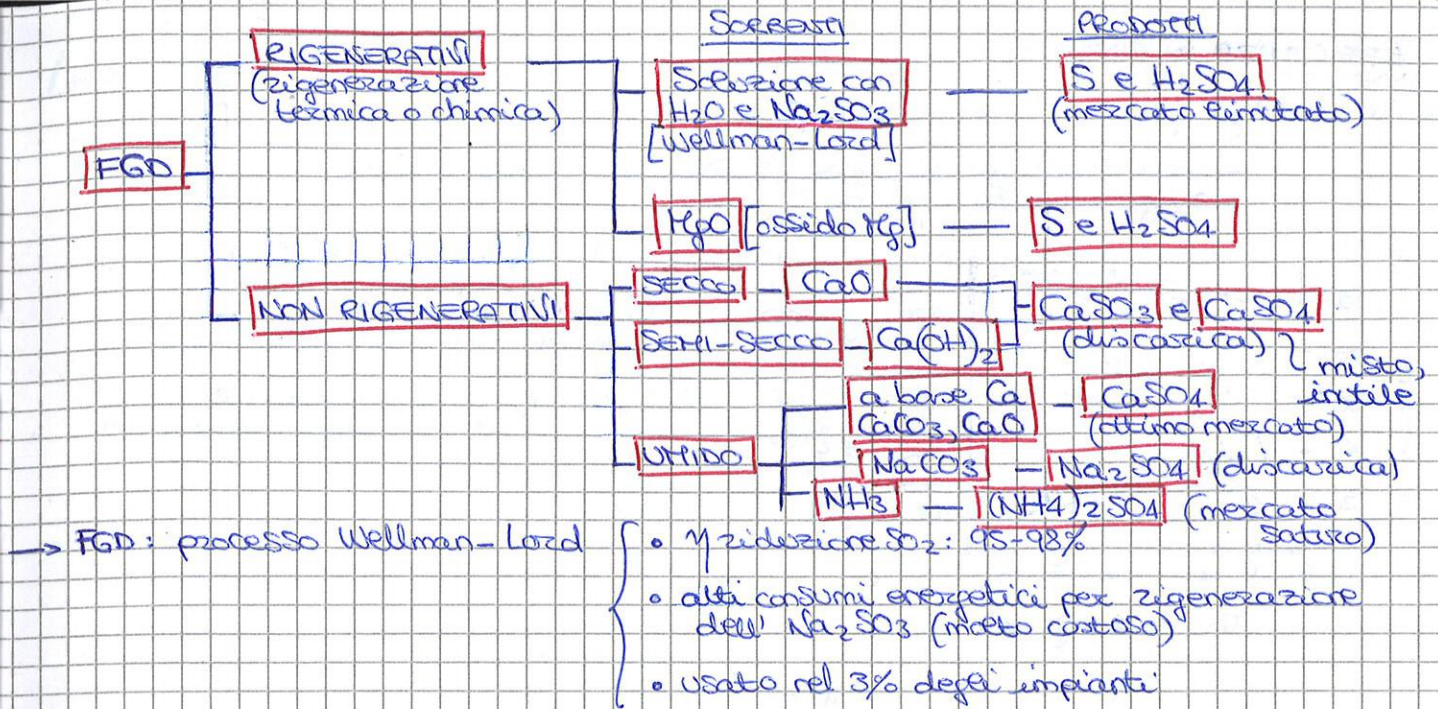 SORBENTI PRODOTTI
RIGENERATIVI
(rigenerazione
termica o chimica)
Soluzione con
H2O e Na2SO3
[Wellman-Lord]
S e H2SO4
(mercato limitato)
FGD
MgO [ossido Mg]
S e H2SO4
NON RIGENERATIVI
SECCO
CaO
CaSO3 e CaSO4
(discarica)
misto,
inutile
SEMI-SECCO
Ca(OH)2
UMIDO
a base Ca
CaCO3, CaO
CaSO4
(ottimo mercato)
NaCO3
Na2SO4 (discarica)
NH3
(NH4)2SO4 (mercato
saturo)
→ FGD: processo Wellman-Lord
• η riduzione SO2: 95-98%
• alti consumi energetici per rigenerazione
dell' Na2SO3 (molto costoso)
• usato nel 3% degli impianti